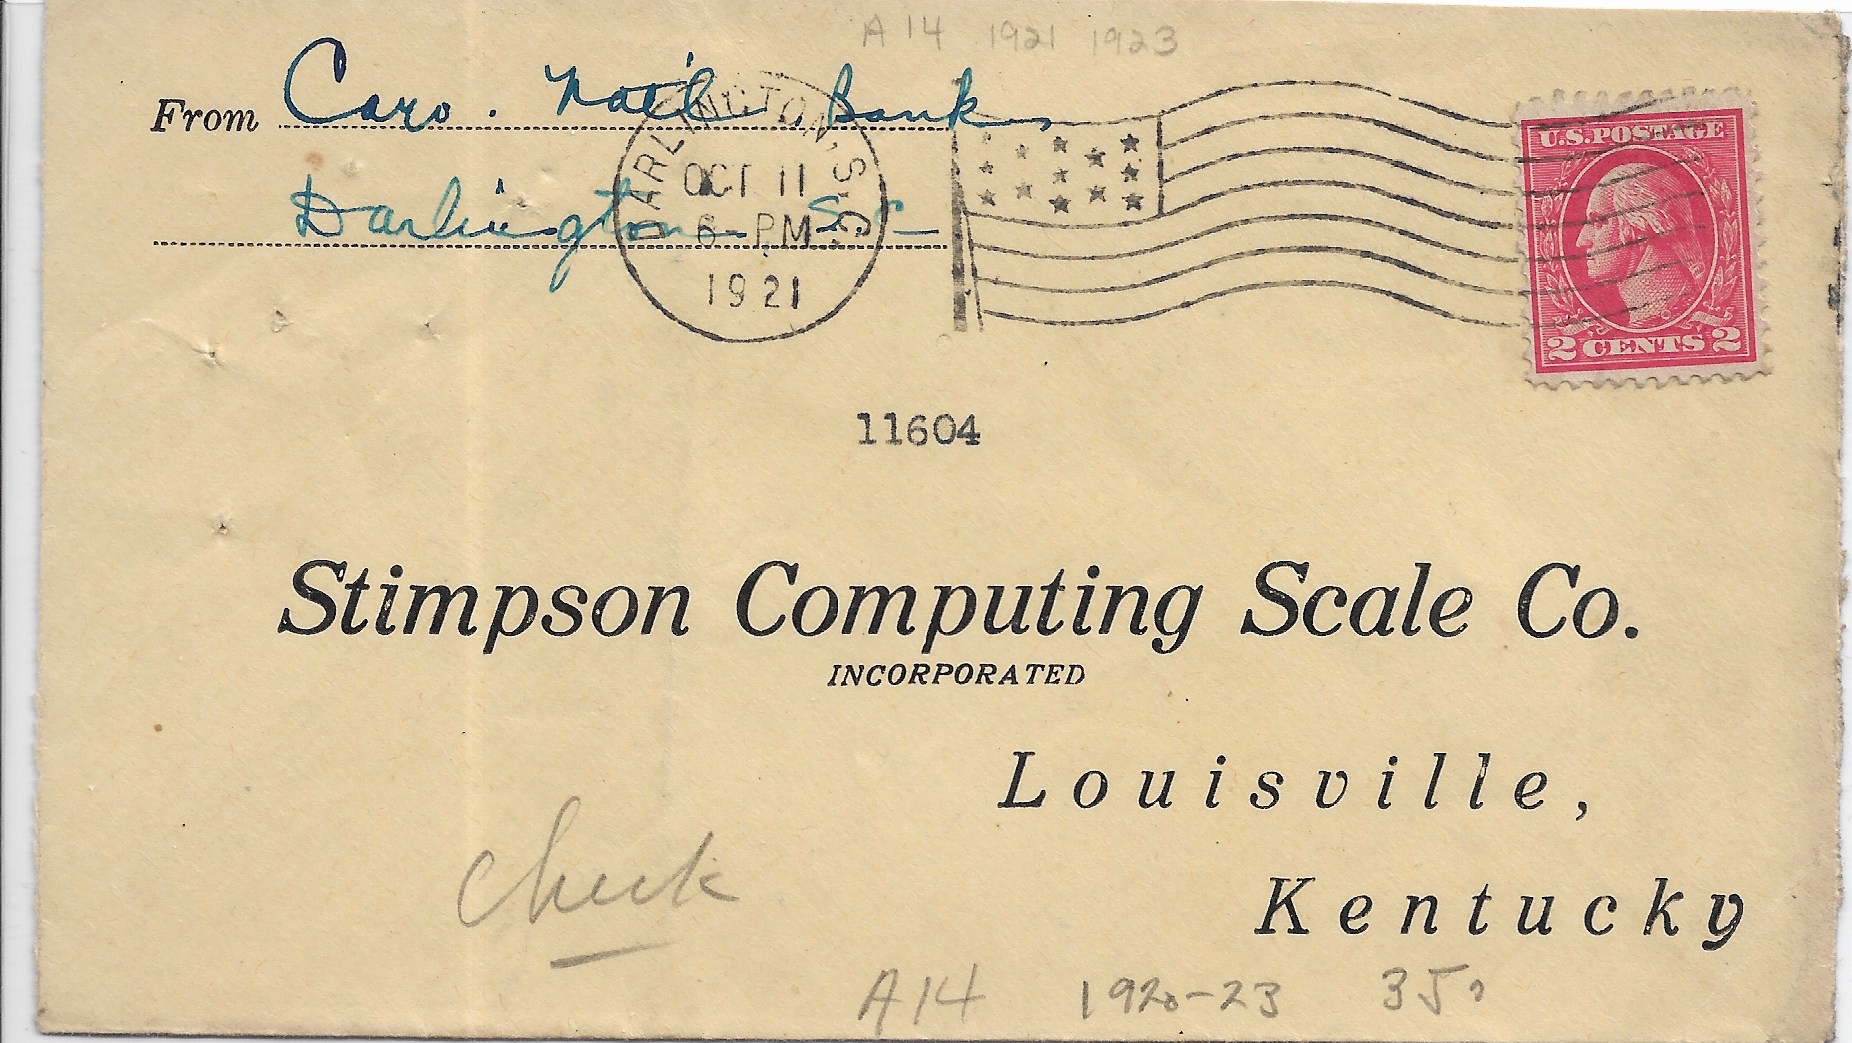 A14 1921 1923
From Caro. Nat'l Bank
Darlington S.C.
DARLINGTON, S.C.
OCT 11
6 PM
1921
U.S. POSTAGE
2 CENTS 2
11604
Stimpson Computing Scale Co.
INCORPORATED
Louisville,
Kentucky
Check
A14 1920-23 350